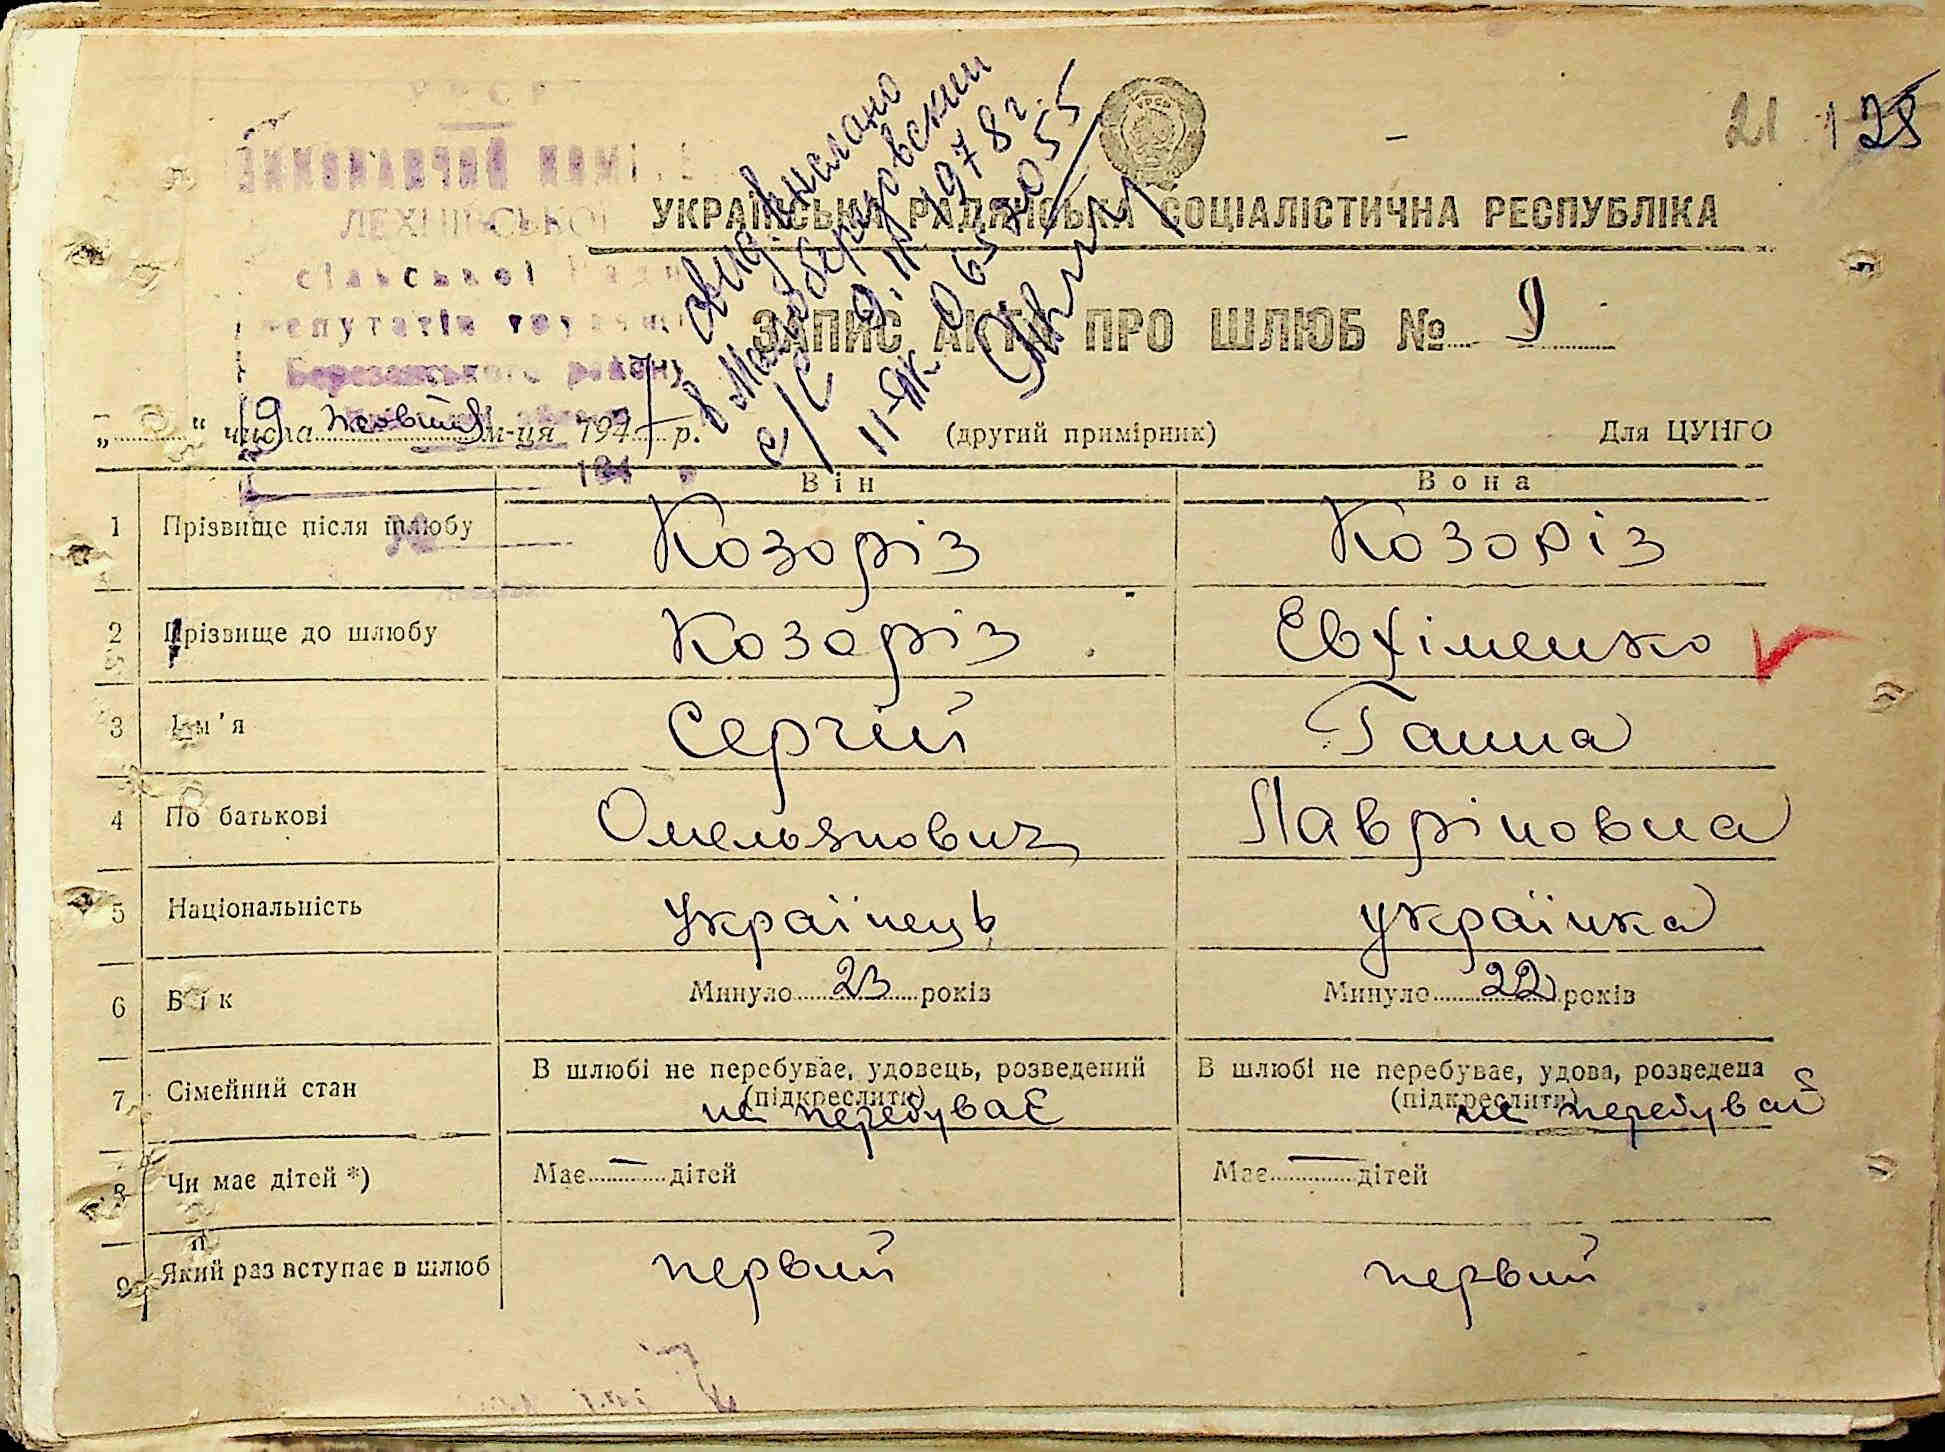 21 128
УРСР
ВИКОНАВЧИЙ КОМІТЕТ
ЛЕХНІВСЬКОЇ
сільської Ради
депутатів трудящ
Березанського району
свид. вислано
в Малоберезовский
с/с 9. II 1978 г.
II-ЯК 0657055
УКРАЇНСЬКА РАДЯНСЬКА СОЦІАЛІСТИЧНА РЕСПУБЛІКА
ЗАПИС АКТА ПРО ШЛЮБ № 9
„ “ 19 числа жовтня м-ця 1947 р. (другий примірник) Для ЦУНГО
194 р
Він Вона
1 Прізвище після шлюбу Козоріз Козоріз
2 Прізвище до шлюбу Козоріз Евхіменко
3 Ім'я Сергій Ганна
4 По батькові Омельянович Лавріновна
5 Національність Українець українка
6 Вік Минуло 23 років Минуло 22 років
7 Сімейний стан В шлюбі не перебуває, удовець, розведений В шлюбі не перебуває, удова, розведена
(підкреслити) (підкреслити)
не перебуває не перебуває
8 Чи має дітей *) Має — дітей Має — дітей
9 Який раз вступає в шлюб первий первий